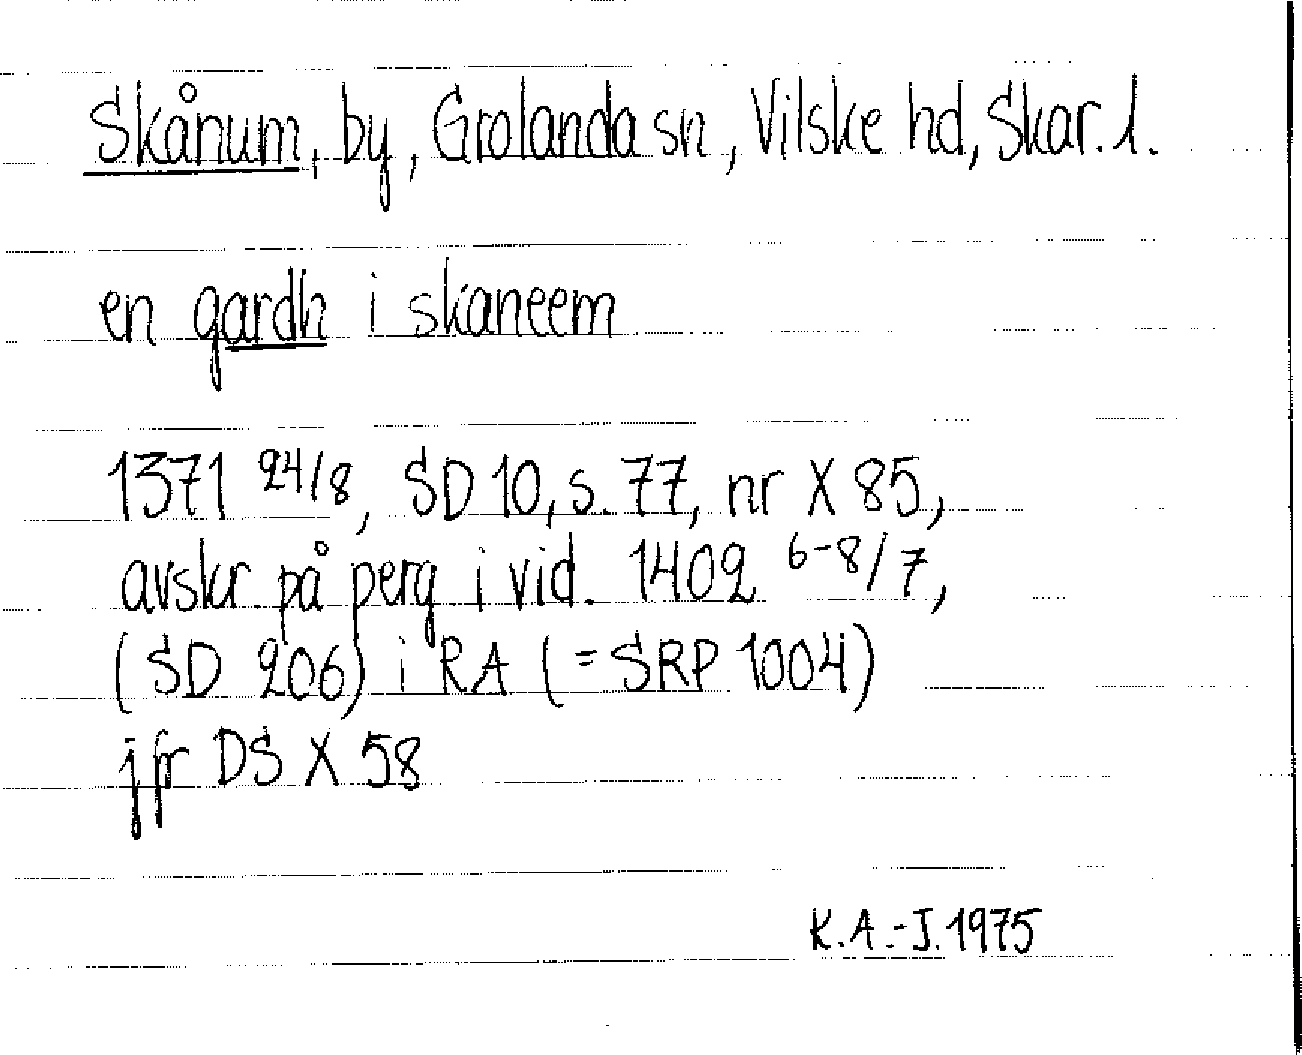 Skånum, by, Grolanda sn, Vilske hd, Skar. l.
en gardh i skaneem
1371 24/8, SD 10, s. 77, nr X 85,
avskr. på perg i vid. 1402 6-8/7,
(SD 206) i RA (=SRP 1004)
jfr DS X 58
K.A.-J. 1975